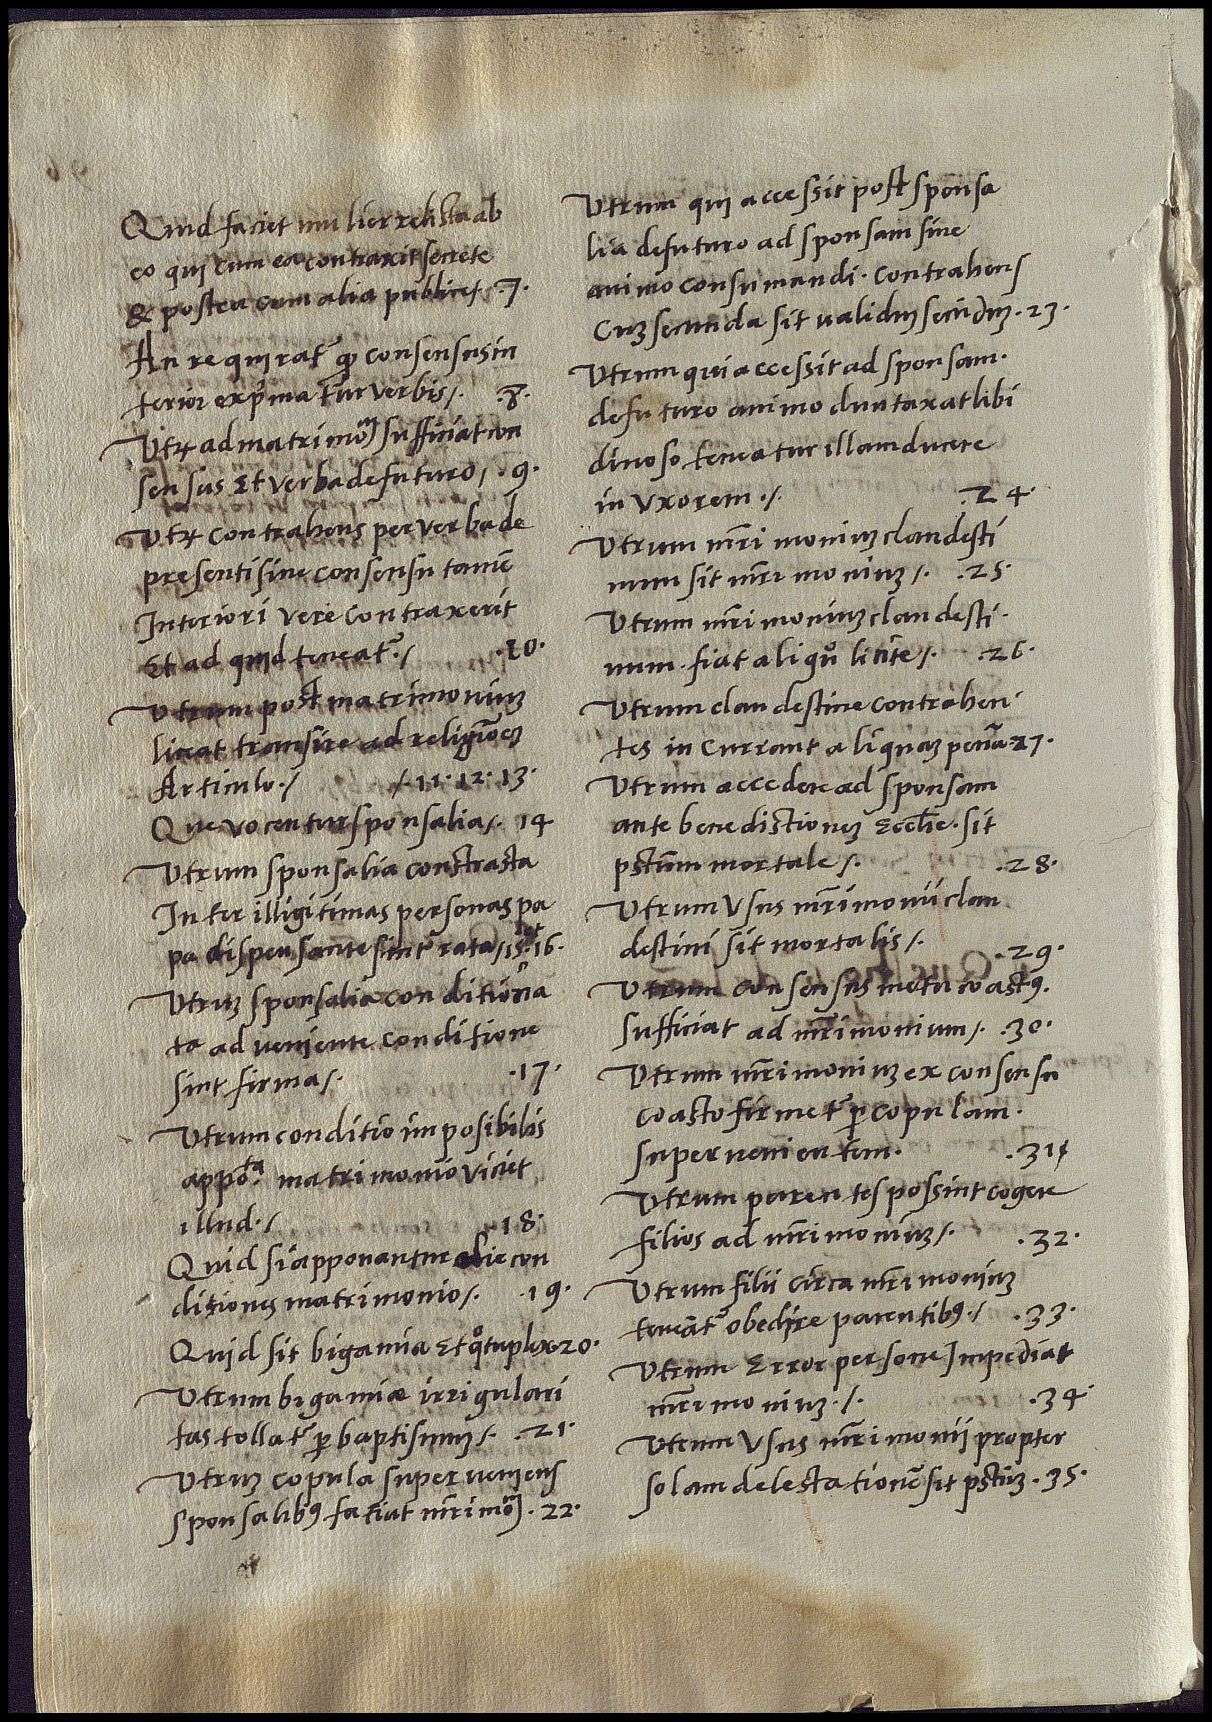 Quid faciet mulier relicta ab
eo qui cum ea contraxit secrete
& postea cum alia publice/. .7.
An requirat̃ ꝙ consensus in
terior exp̃matur verbis/. .8.
Vtꝝ ad matrimõȝ sufficiat con
sensus Et verba de futuro/. .9.
Vtꝝ contrahens per verba de
presenti sine consensu tamẽ
Interiori vere contraxerit
Et ad quid teneat̃./ .10.
Vtrum post matrimoniuȝ
liceat transire ad religiõeȝ
Articulo./ /.11.12.13.
Que vocentur sponsalia/. 14
Vtrum sponsalia constracta
Inter illigitimas personas pa
pa dispensante sint rata/15.et.16.
Vtruȝ sponsalia conditiõna
ta adveniente conditione
sint firma/. .17.
Vtrum conditio imposibilis
appõta matrimonio viciet
illud./ .18.
Quid si apponantur alie con
ditiones matrimonio/. .19.
Quid sit bigamia Et qͦtuplex.20.
Vtrum bigamiæ irrigulari
tas tollat̃ ꝑ baptismuȝ/. .21.
Vtruȝ copula superveniens
sponsalibꝰ fatiat mr̃imõȝ. 22.
Vtrum qui accessit post sponsa
lia de futuro ad sponsam sine
animo consumandi. Contrahens
Cuȝ secunda sit validuȝ secũduȝ. 23.
Vtrum qui accessit ad sponsam.
de futuro animo duntaxat libi
dinoso teneatur illam ducere
in Vxorem./. .24.
Vtrum mr̃imoniuȝ clandesti
num sit mr̃imoniuȝ/. .25.
Vtrum mr̃imoniuȝ clandesti.
num. fiat aliqñ licite/. .26.
Vtrum clandestine contrahen.
tes incurrant aliquaȝ penã.27.
Vtrum accedere ad sponsam
ante benedictioneȝ Eccl̃ie. sit
pctũm mortale/. .28.
Vtrum Vsus mr̃imonii clan
destini sit mortalis/. .29.
Vtrum consensus metu coactꝰ.
sufficiat ad mr̃imonium/. .30.
Vtrum mr̃imoniuȝ ex consensu
coacto firmet̃ ꝑ copulam.
supervenientem. .31.
Vtrum parentes possint cogere
filios ad mr̃imoniuȝ/. .32.
Vtrum filii circa mr̃imoniuȝ
teneãt̃ obedire parentibꝰ./ .33.
Vtrum Error persone Impediat
mr̃imoniuȝ./. .34.
Vtrum Vsus mr̃imonii propter
solam delectationẽ sit pctũȝ. 35.